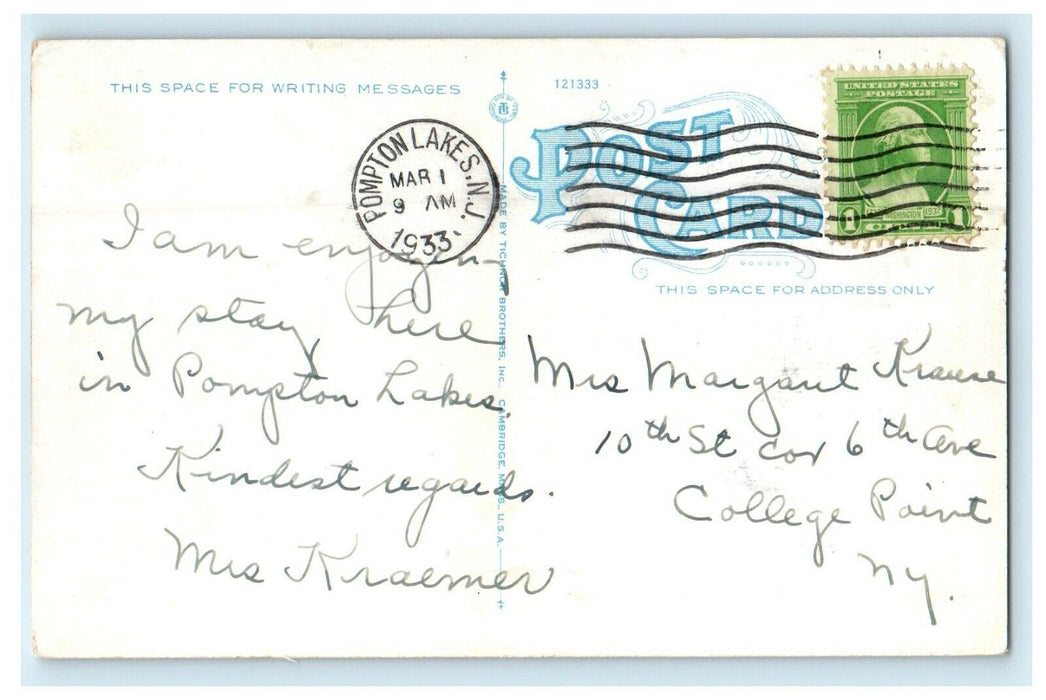 THIS SPACE FOR WRITING MESSAGES
121333
POST CARD
POMPTON LAKES. N.J.
MAR 1
9 AM
1933
UNITED STATES
POSTAGE
1 WASHINGTON 1932 1
THIS SPACE FOR ADDRESS ONLY
MADE BY TICHNOR BROTHERS, INC., CAMBRIDGE, MASS., U.S.A.
I am enjoying
my stay here
in Pompton Lakes.
Kindest regards.
Mrs Kraemer
Mrs Margaut Krause
10th St cor 6th Ave
College Point
NY.